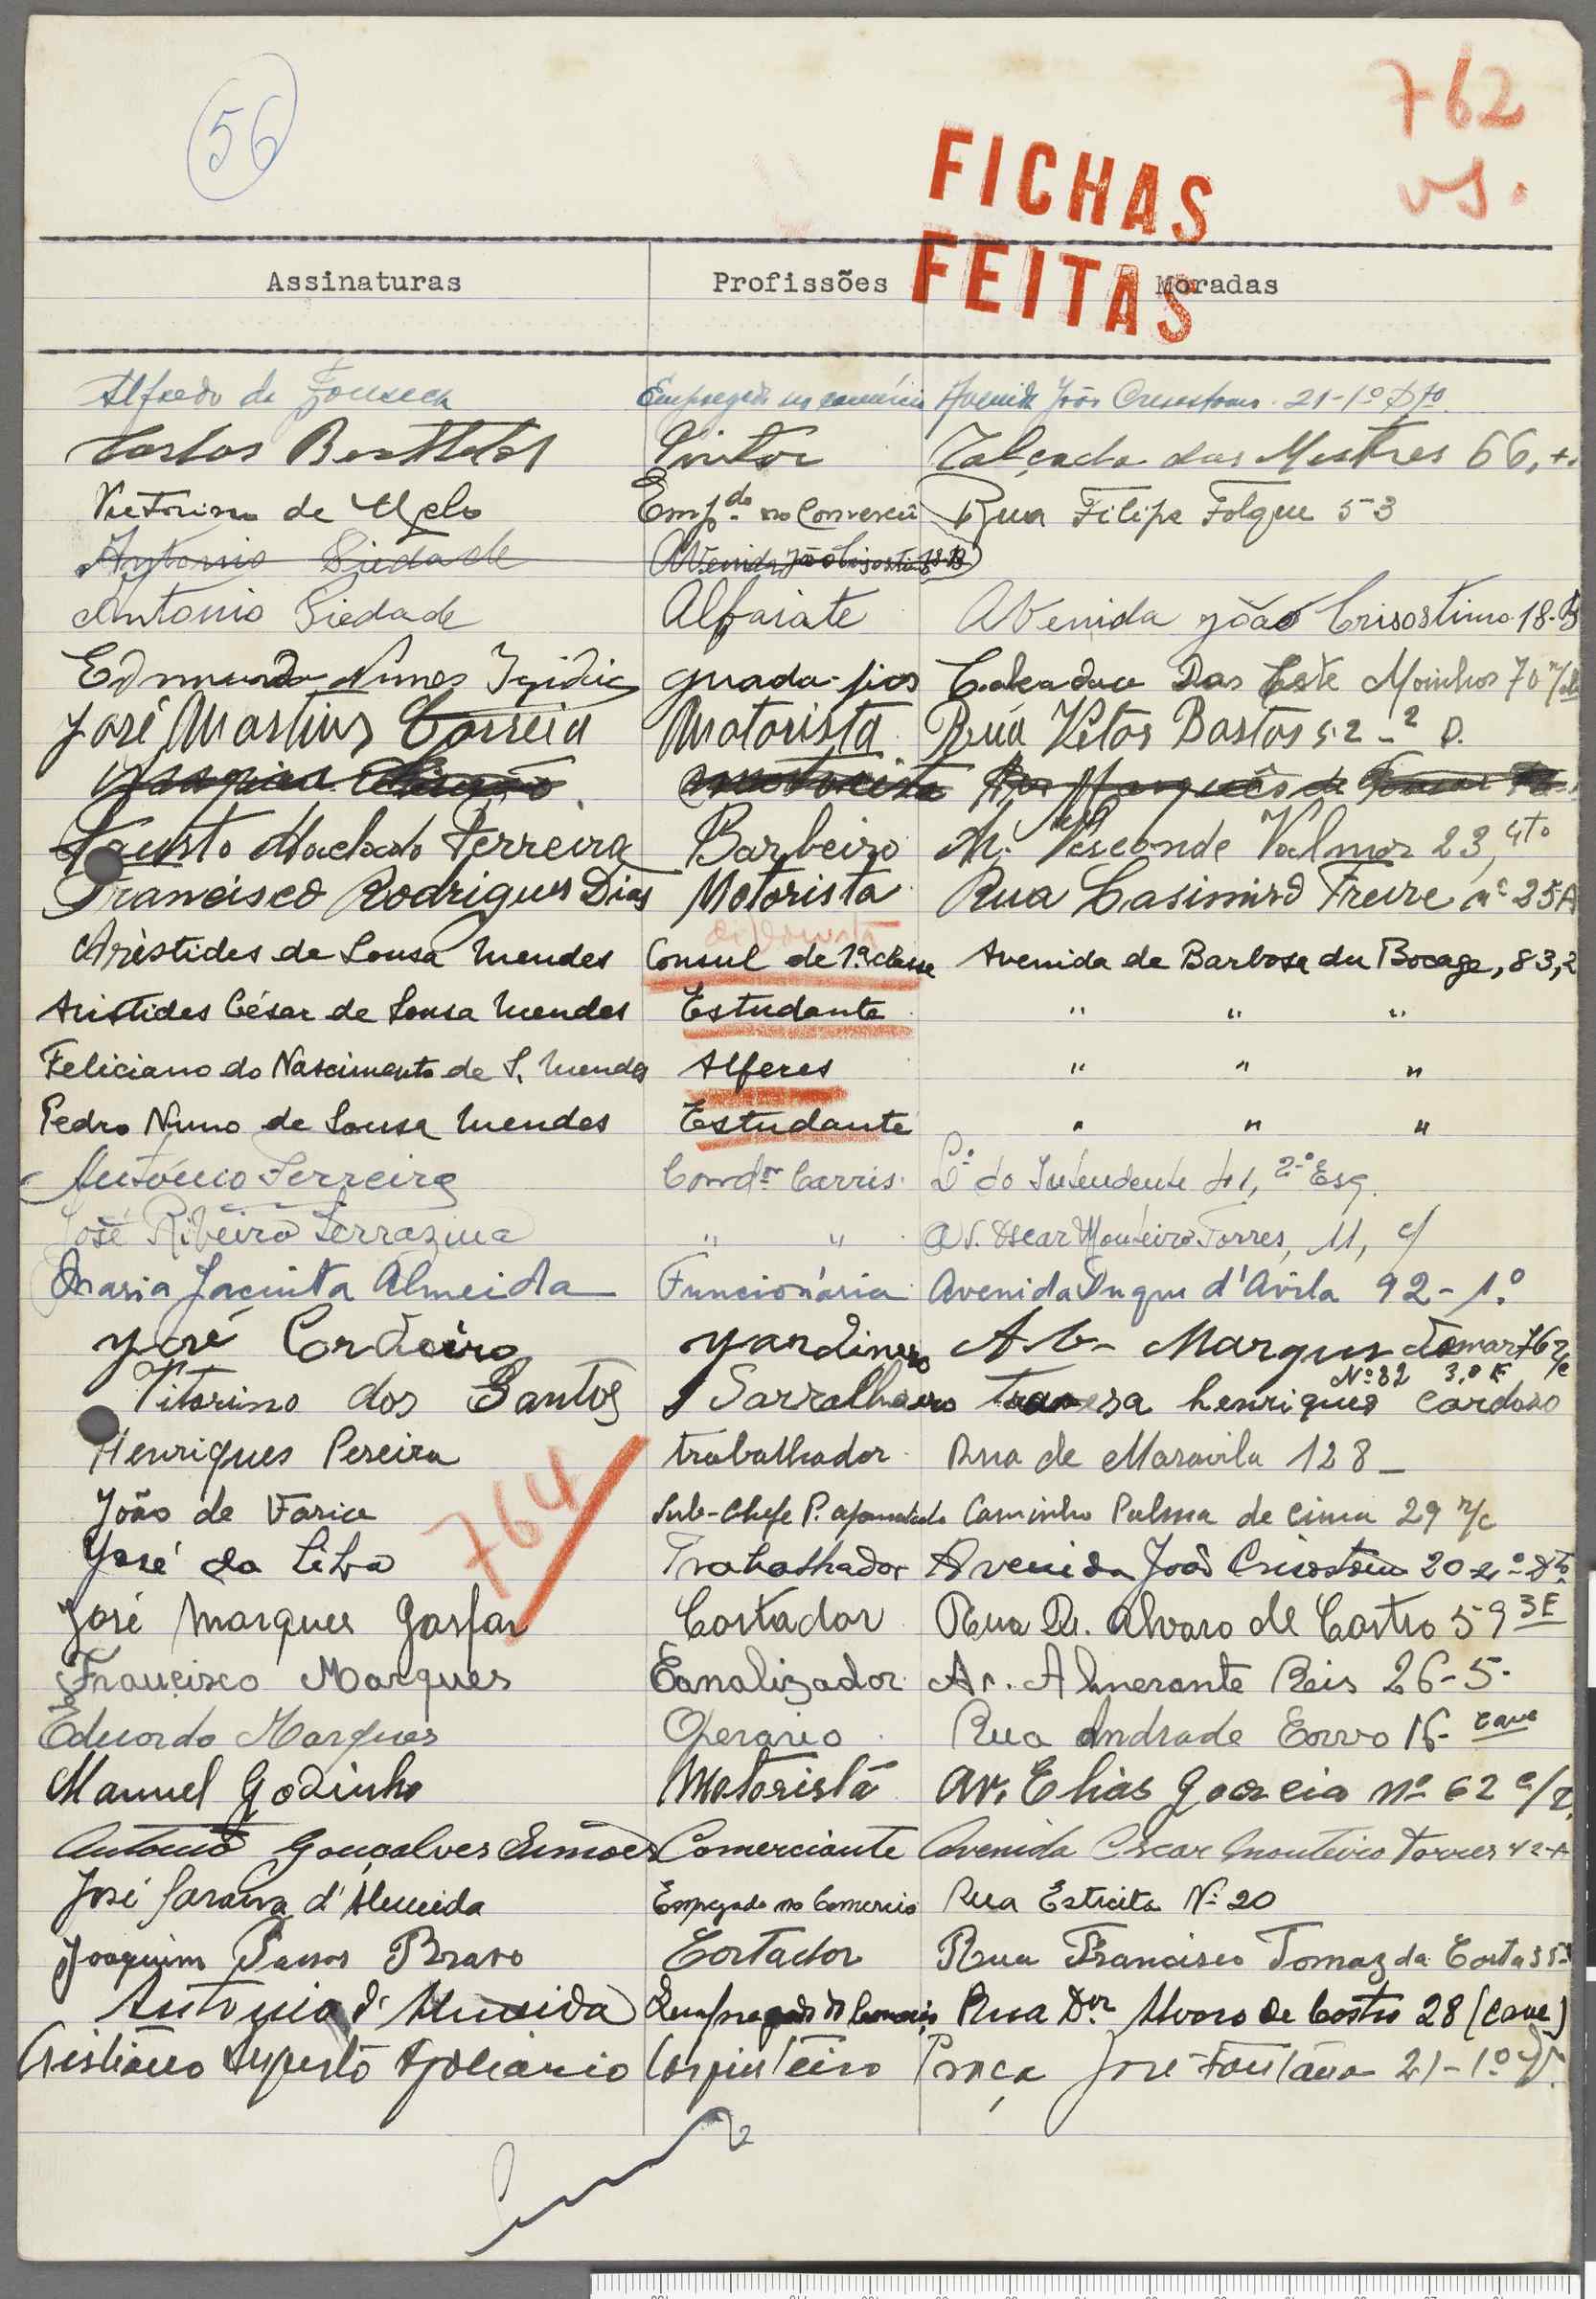 56
762
vs.
FICHAS
FEITAS
Assinaturas Profissões Moradas
Alfredo da Fonseca Empregado no comércio Avenida João Crisostomo 21-1º Dto
Carlos Pintor Calçada dos Mestres 66,
Victorino de Melo Emp.do no Comercio Rua Filipe Folque 53
Antonio Piedade Avenida João Crisostimo 18-B
Antonio Piedade Alfaiate Avenida João Crisostimo 18-B
Edmundo Nunes guarda-fios Calçada Das Sete Moinhos 70
José Martins Correia Motorista Rua Vitor Bastos 52-2 D.
motorista Av Marquês de Tomar
Fausto Machado Ferreira Barbeiro Visconde Valmor 23, 4to
Francisco Rodrigues Dias Motorista Rua Casimiro Freire nº 25A
diplomata
Aristides de Sousa Mendes Consul de 1ª classe Avenida de Barbosa du Bocage, 83, 2
Aristides César de Sousa Mendes Estudante " " "
Feliciano do Nascimento de S. Mendes Alferes " " "
Pedro Nuno de Sousa Mendes Estudante " " "
António Ferreira Condor Carris. Lº do Intendente 41, 2º Esq.
José Ribeiro Serrazina " " Av. Oscar Monteiro Torres, 11, c/
Maria Jacinta Almeida Funcionária Avenida Duque d'Avila 92-1.º
José Cordeiro Jardineiro Av Marques Tomar 76 r/c
Nº 82 3,º E
Vitorino dos Santos Sarralheiro Travesa henriques Cardoso
Henriques Pereira trabalhador Rua de Maravila 128
764
João de Faria Sub-Chefe P. aposentado Caminho Palma de Cima 29 r/c
José da Silva Trabalhador Avenida João Crisostomo 20
José Marques Gaspar Cortador Rua Dr. Alvaro de Castro 59 3E
Francisco Marques Canalizador Av. Almerante Reis 26-5-
Eduardo Marques Operario Rua Andrade Corvo 16- cave
Manuel Godinho Motorista Av. Elias Garcia nº 62 c/
Antonio Gonçalves Simões Comerciante Avenida Oscar Monteiro Torres 42-A
José Saraiva d'Almeida Empregado no Comercio Rua Estreita Nº 20
Joaquim Passos Bravo Cortador Rua Francisco Tomaz da Costa 35
Antonio d'Almeida Empregado do Comercio Rua Dor Alvaro de Castro 28 (Cave)
Cristiano Augusto Carpinteiro Praça José Fontana 21-1º